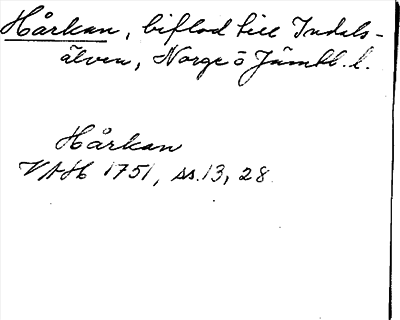 Hårkan, biflod till Indals-
älven, Norge o Jämtl. l.
Hårkan
VAH 1751, ss. 13, 28